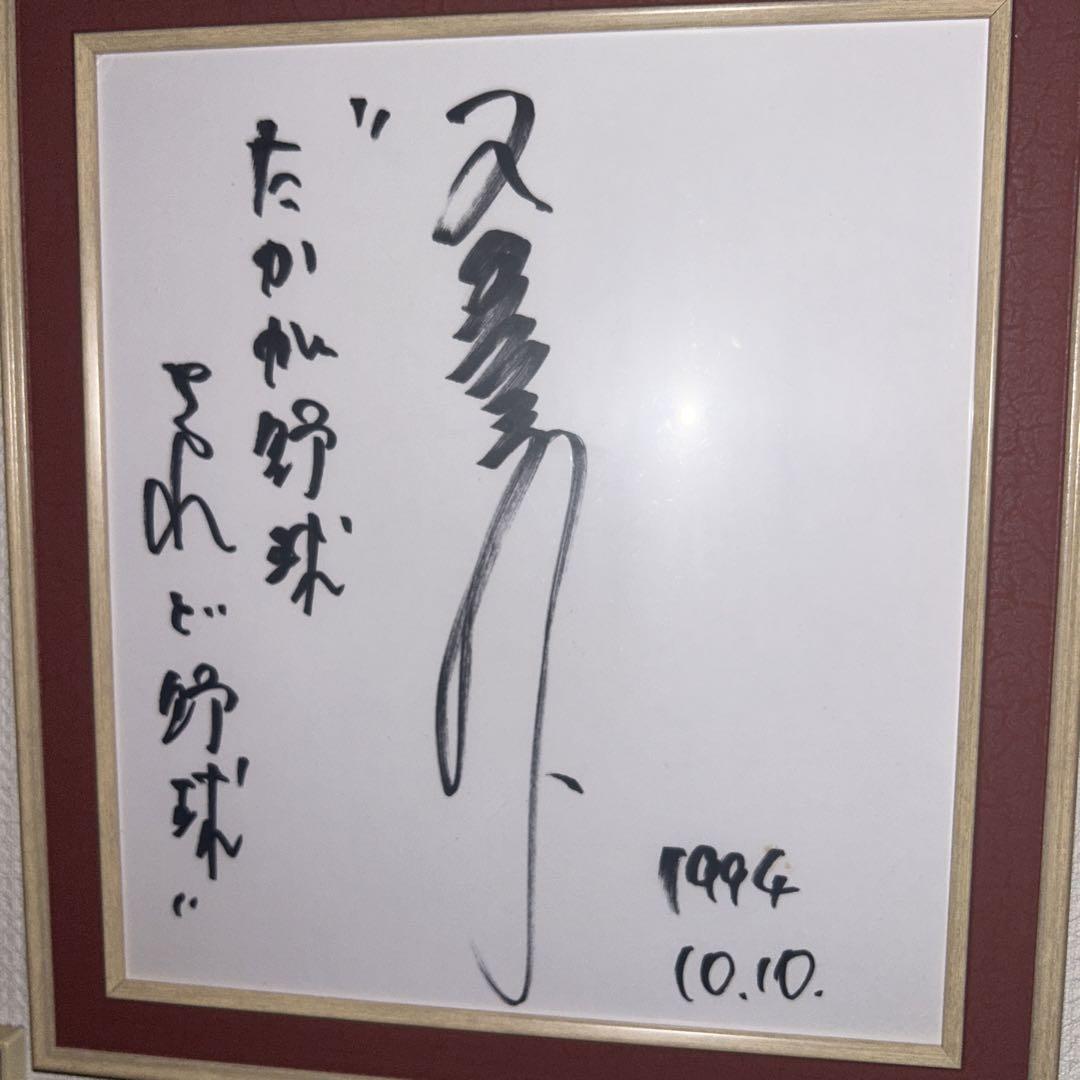 "たかが野球
されど野球"
1994
10.10.